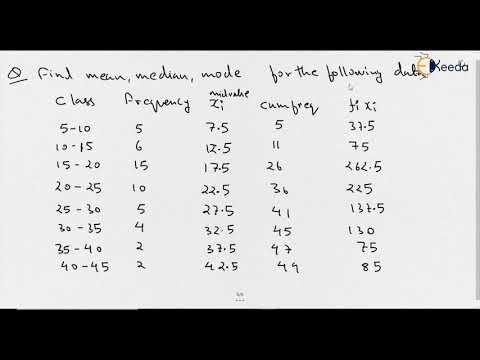 Q Find mean, median, mode for the following data
Ekeeda
midvalue
Class Frequency xi cumfreq fi xi
5-10 5 7.5 5 37.5
10-15 6 12.5 11 75
15-20 15 17.5 26 262.5
20-25 10 22.5 36 225
25-30 5 27.5 41 137.5
30-35 4 32.5 45 130
35-40 2 37.5 47 75
40-45 2 42.5 49 85